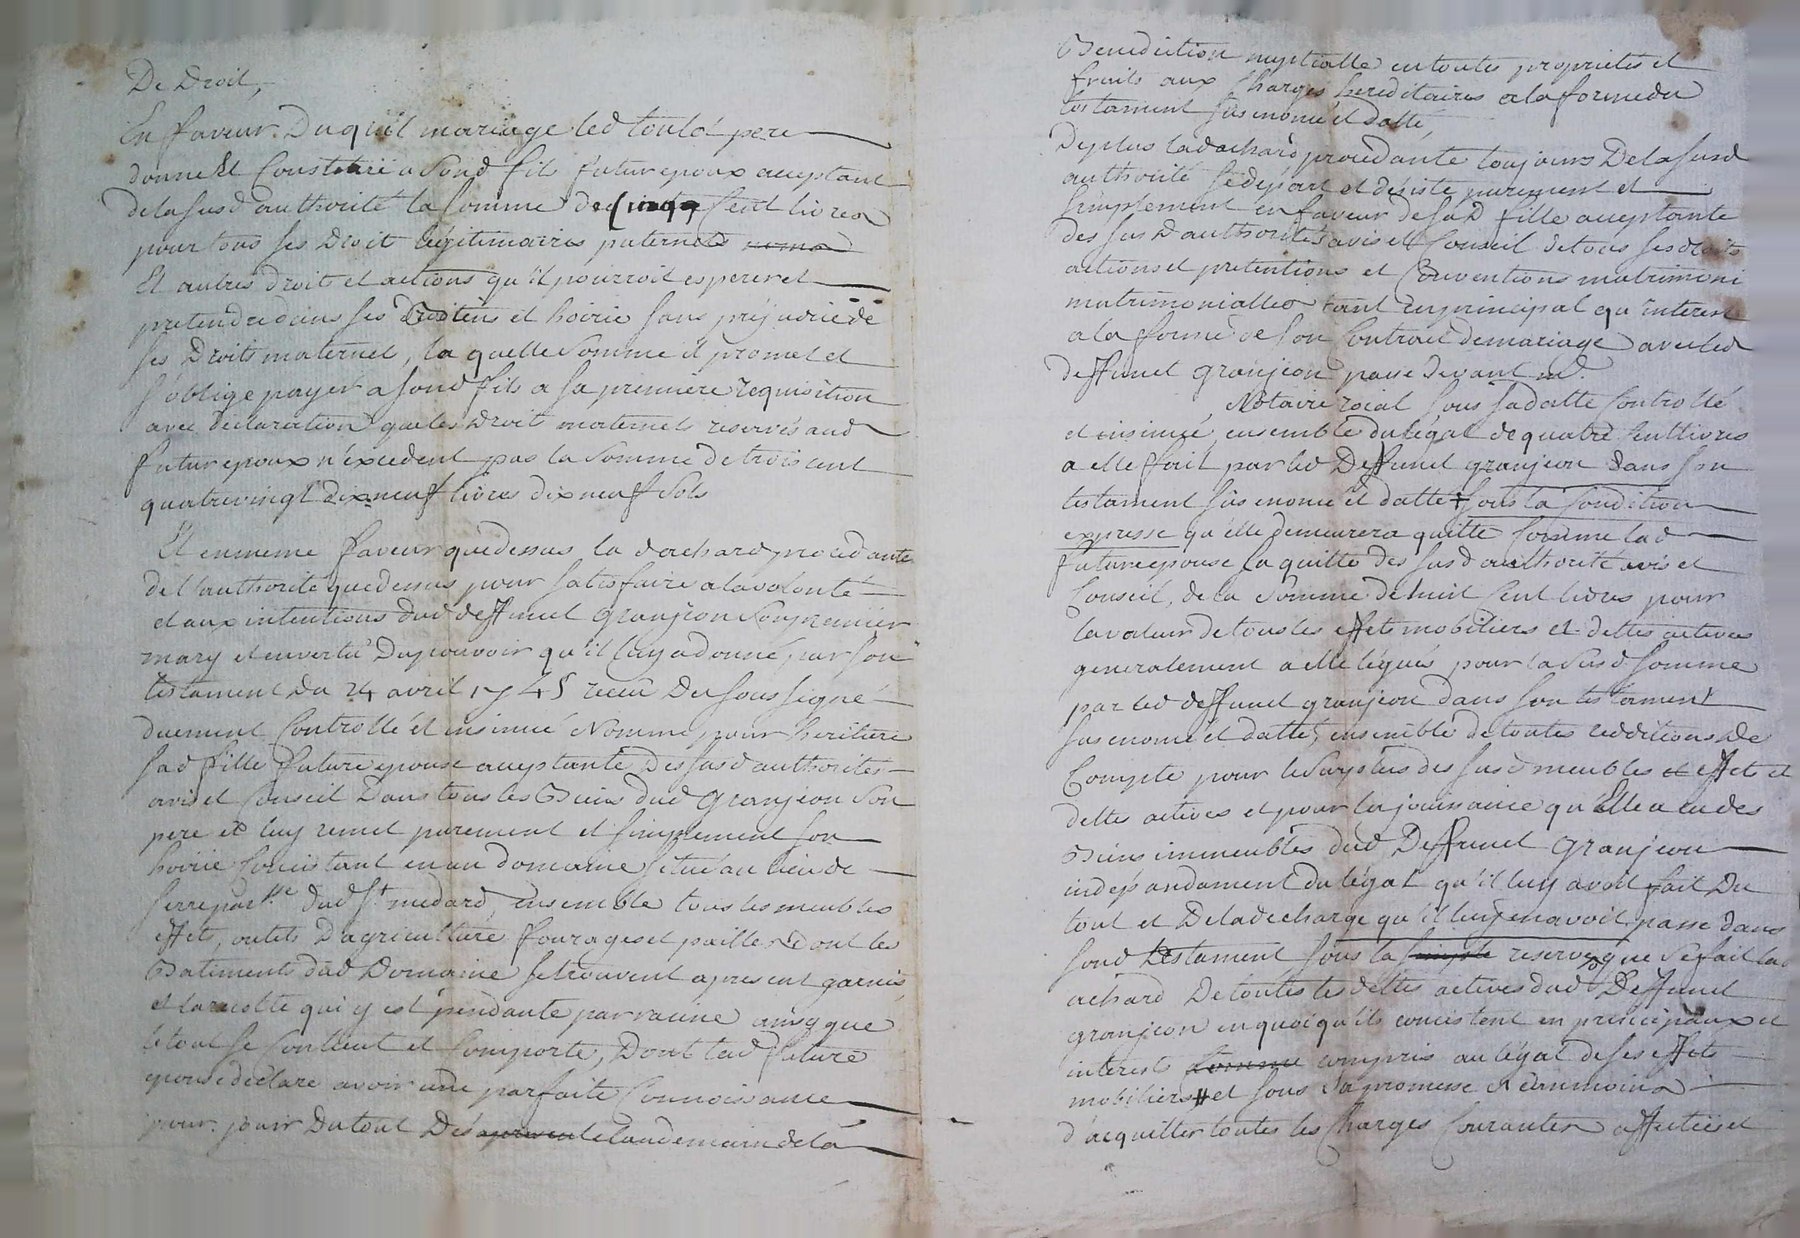 De Droit,
En faveur Duquel mariage led toula pere
donne Et Constitue a Sond fils futur epoux acceptant
de la susd authorité la somme de Cinq Cent livres
pour tous ses Droit légitimaires paternels
Et autres droits et actions qu'il pourroit esperer et
pretendre dans ses Biens et hoirie sans préjudice de
ses Droits maternel, la quelle somme il promet et
s'oblige payer a sond fils a sa premiere requisition
avec declaration que les Droit maternels reservés aud
futur epoux n'excedent pas la somme de trois cent
quatrevingt dix neuf livres dix neuf sols
Et en meme faveur que dessus la d achard procedante
de l'authorité que dessus pour satisfaire a la volonté
et aux intentions dud deffunct granjeon son premier
mary et en vertu Du pouvoir qu'il luy a donné par son
testament du 24 avril 1745 receu Du sous signé
duement Controllé et insinué Nomme pour heritiere
sad fille future epouse acceptante des susd authorités
avis et Conseil Dans tous les Biens dud Granjeon son
pere et luy remet purement et simplement son
hoirie Concistant en un domaine situé au lieu de
serre par.sse dud St medard, ensemble tous les meubles
effets, outils D'agriculture fourages et pailles Dont les
Batiments dud Domaine se trouvent a present garnis,
et la recolte qui y est pendante par racine ainsy que
le tout se Contient et Comporte, Dont lad future
epouse declare avoir une parfaite Connoissance
pour jouir Du tout Dès a present le landemain de la
Benediction nuptialle en toutes proprietés et
fruits aux Charges hereditaires a la forme du
testament sus enoncé et datté,
De plus lad achard procedante toujours De la susd
authorité se départ et désiste purement et
simplement en faveur de sa d fille acceptante
des susd authorités avis et Conseil de tous ses droits
actions et pretentions et Conventions matrimoni
matrimonialles tant en principal qu'interest
a la forme de son Contract de mariage avec led
deffunct granjeon passé devant me
Notaire roial sous sa datte Controllé
et insinué, ensemble du légat de quatre Cent livres
a elle fait par led Deffunct granjeon dans son
testament sus enoncé et datté + sous la Condition
expresse qu'elle demeurera quitte Comme lad
future epouse la quitte des susd authorité avis et
Conseil, de la somme de huit Cent livres pour
la valeur de tous les effets mobiliers et dettes actives
generalement a elle légués pour la susd somme
par led deffunct granjeon dans son testament
sus enoncé et datté, ensemble de toutes redditions De
Compte pour le surplus des susd meubles et effets et
dettes actives et pour la jouissance qu'Elle a eu des
Biens immeubles dud Deffunct granjeon
indépandament du légat qu'il luy avoit fait Du
tout et De la decharge qu'il luy en avoit passé dans
sond testament sous la simple reserve que se fait lad
achard De toutes les dettes actives dud Deffunct
granjeon en quoi qu'ils concistent en principaux et
interest Comme compris au légat de ses effets
mobiliers # et sous la promesse Néanmoins
d'acquitter toutes les Charges Courantes affectées